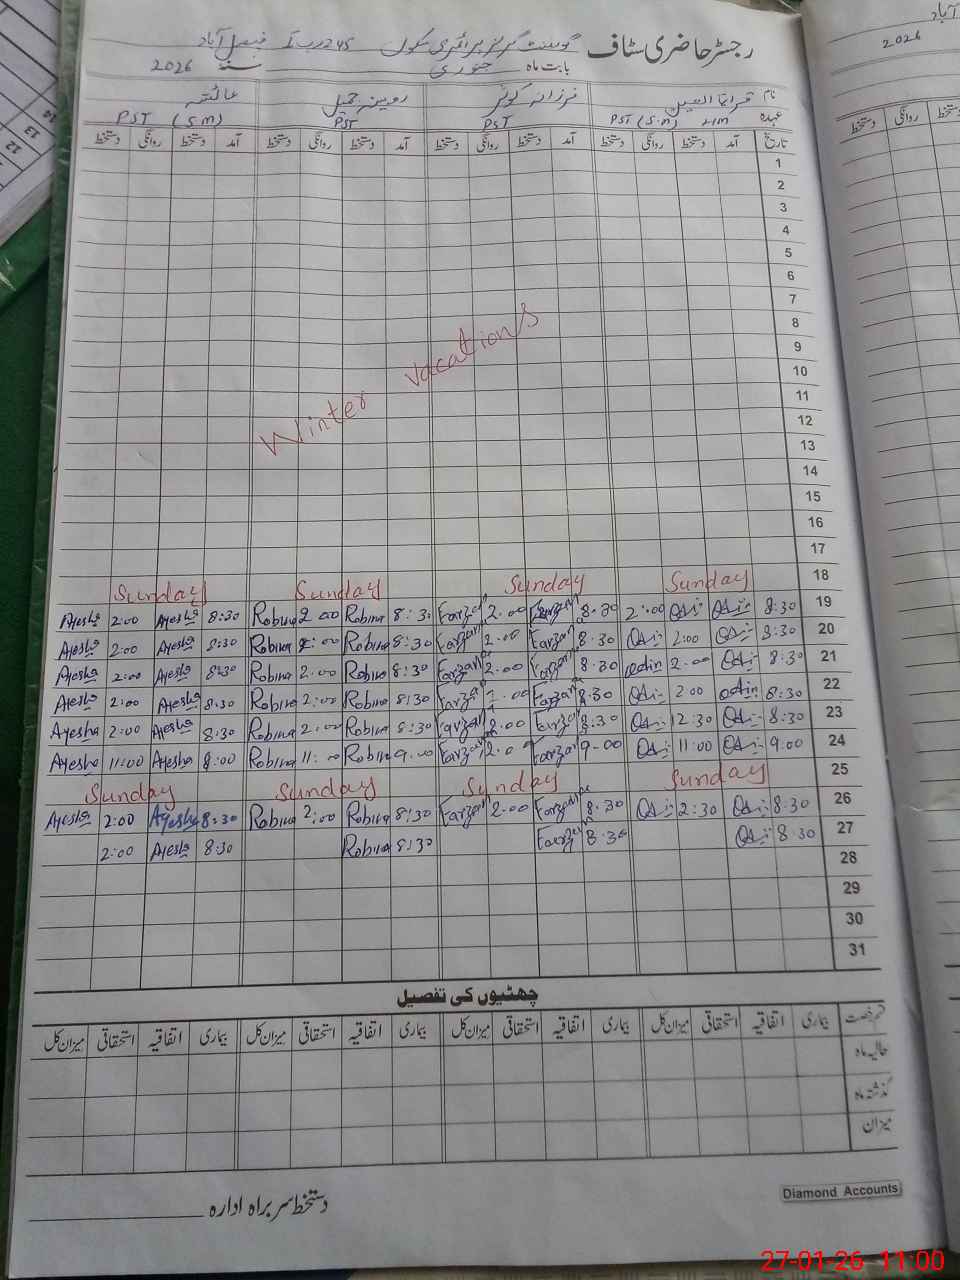 رجسٹر حاضری سٹاف گورنمنٹ گرلز پرائمری سکول 245 رب فیصل آباد
بابت ماہ جنوری سنہ 2026
نام قرۃ العین فرزانہ کوثر روبینہ جمیل عائشہ
عہدہ PST (S.M) PST PST PST (S.M)
تاریخ آمد دستخط روانگی دستخط آمد دستخط روانگی دستخط آمد دستخط روانگی دستخط آمد دستخط روانگی دستخط
1
2
3
4
5
6
7
8
9
10
11
12
13
14
15
16
17
Winter Vacations
Sunday Sunday Sunday Sunday 18
Ayesha 2:00 Ayesha 8:30 Robina 2:00 Robina 8:30 Farzana 2:00 Farzana 8:30 2:00 8:30 19
Ayesha 2:00 Ayesha 8:30 Robina 2:00 Robina 8:30 Farzana 2:00 Farzana 8:30 2:00 8:30 20
Ayesha 2:00 Ayesha 8:30 Robina 2:00 Robina 8:30 Farzana 2:00 Farzana 8:30 2:00 8:30 21
Ayesha 2:00 Ayesha 8:30 Robina 2:00 Robina 8:30 Farzana 2:00 Farzana 8:30 2:00 8:30 22
Ayesha 2:00 Ayesha 8:30 Robina 2:00 Robina 8:30 Farzana 2:00 Farzana 8:30 12:30 8:30 23
Ayesha 11:00 Ayesha 9:00 Robina 11:00 Robina 9:00 Farzana 2:00 Farzana 9:00 11:00 9:00 24
Sunday Sunday Sunday Sunday 25
Ayesha 2:00 Ayesha 8:30 Robina 2:00 Robina 8:30 Farzana 2:00 Farzana 8:30 2:30 8:30 26
2:00 Ayesha 8:30 Robina 8:30 Farzana 8:30 8:30 27
28
29
30
31
چھٹیوں کی تفصیل
قسم رخصت بیماری اتفاقیہ استحقاقی میزان کل بیماری اتفاقیہ استحقاقی میزان کل بیماری اتفاقیہ استحقاقی میزان کل بیماری اتفاقیہ استحقاقی میزان کل
حالیہ ماہ
گذشتہ ماہ
میزان
دستخط سربراہ ادارہ
Diamond Accounts
آباد
2026
روانگی دستخط
14
13
12
27-01-26 11:00